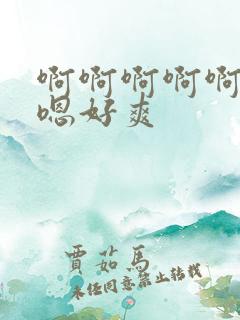 啊啊啊啊啊
嗯好爽
賈茹馬
未经同意禁止转载